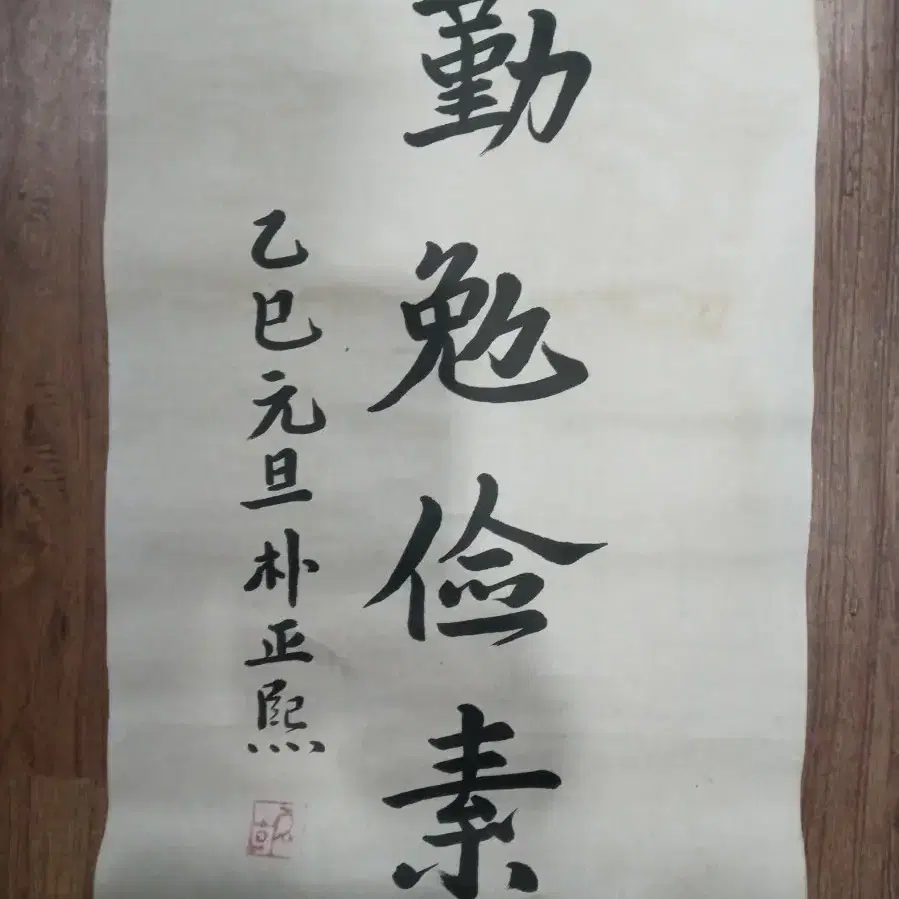 勤勉儉素
乙巳元旦朴正熙